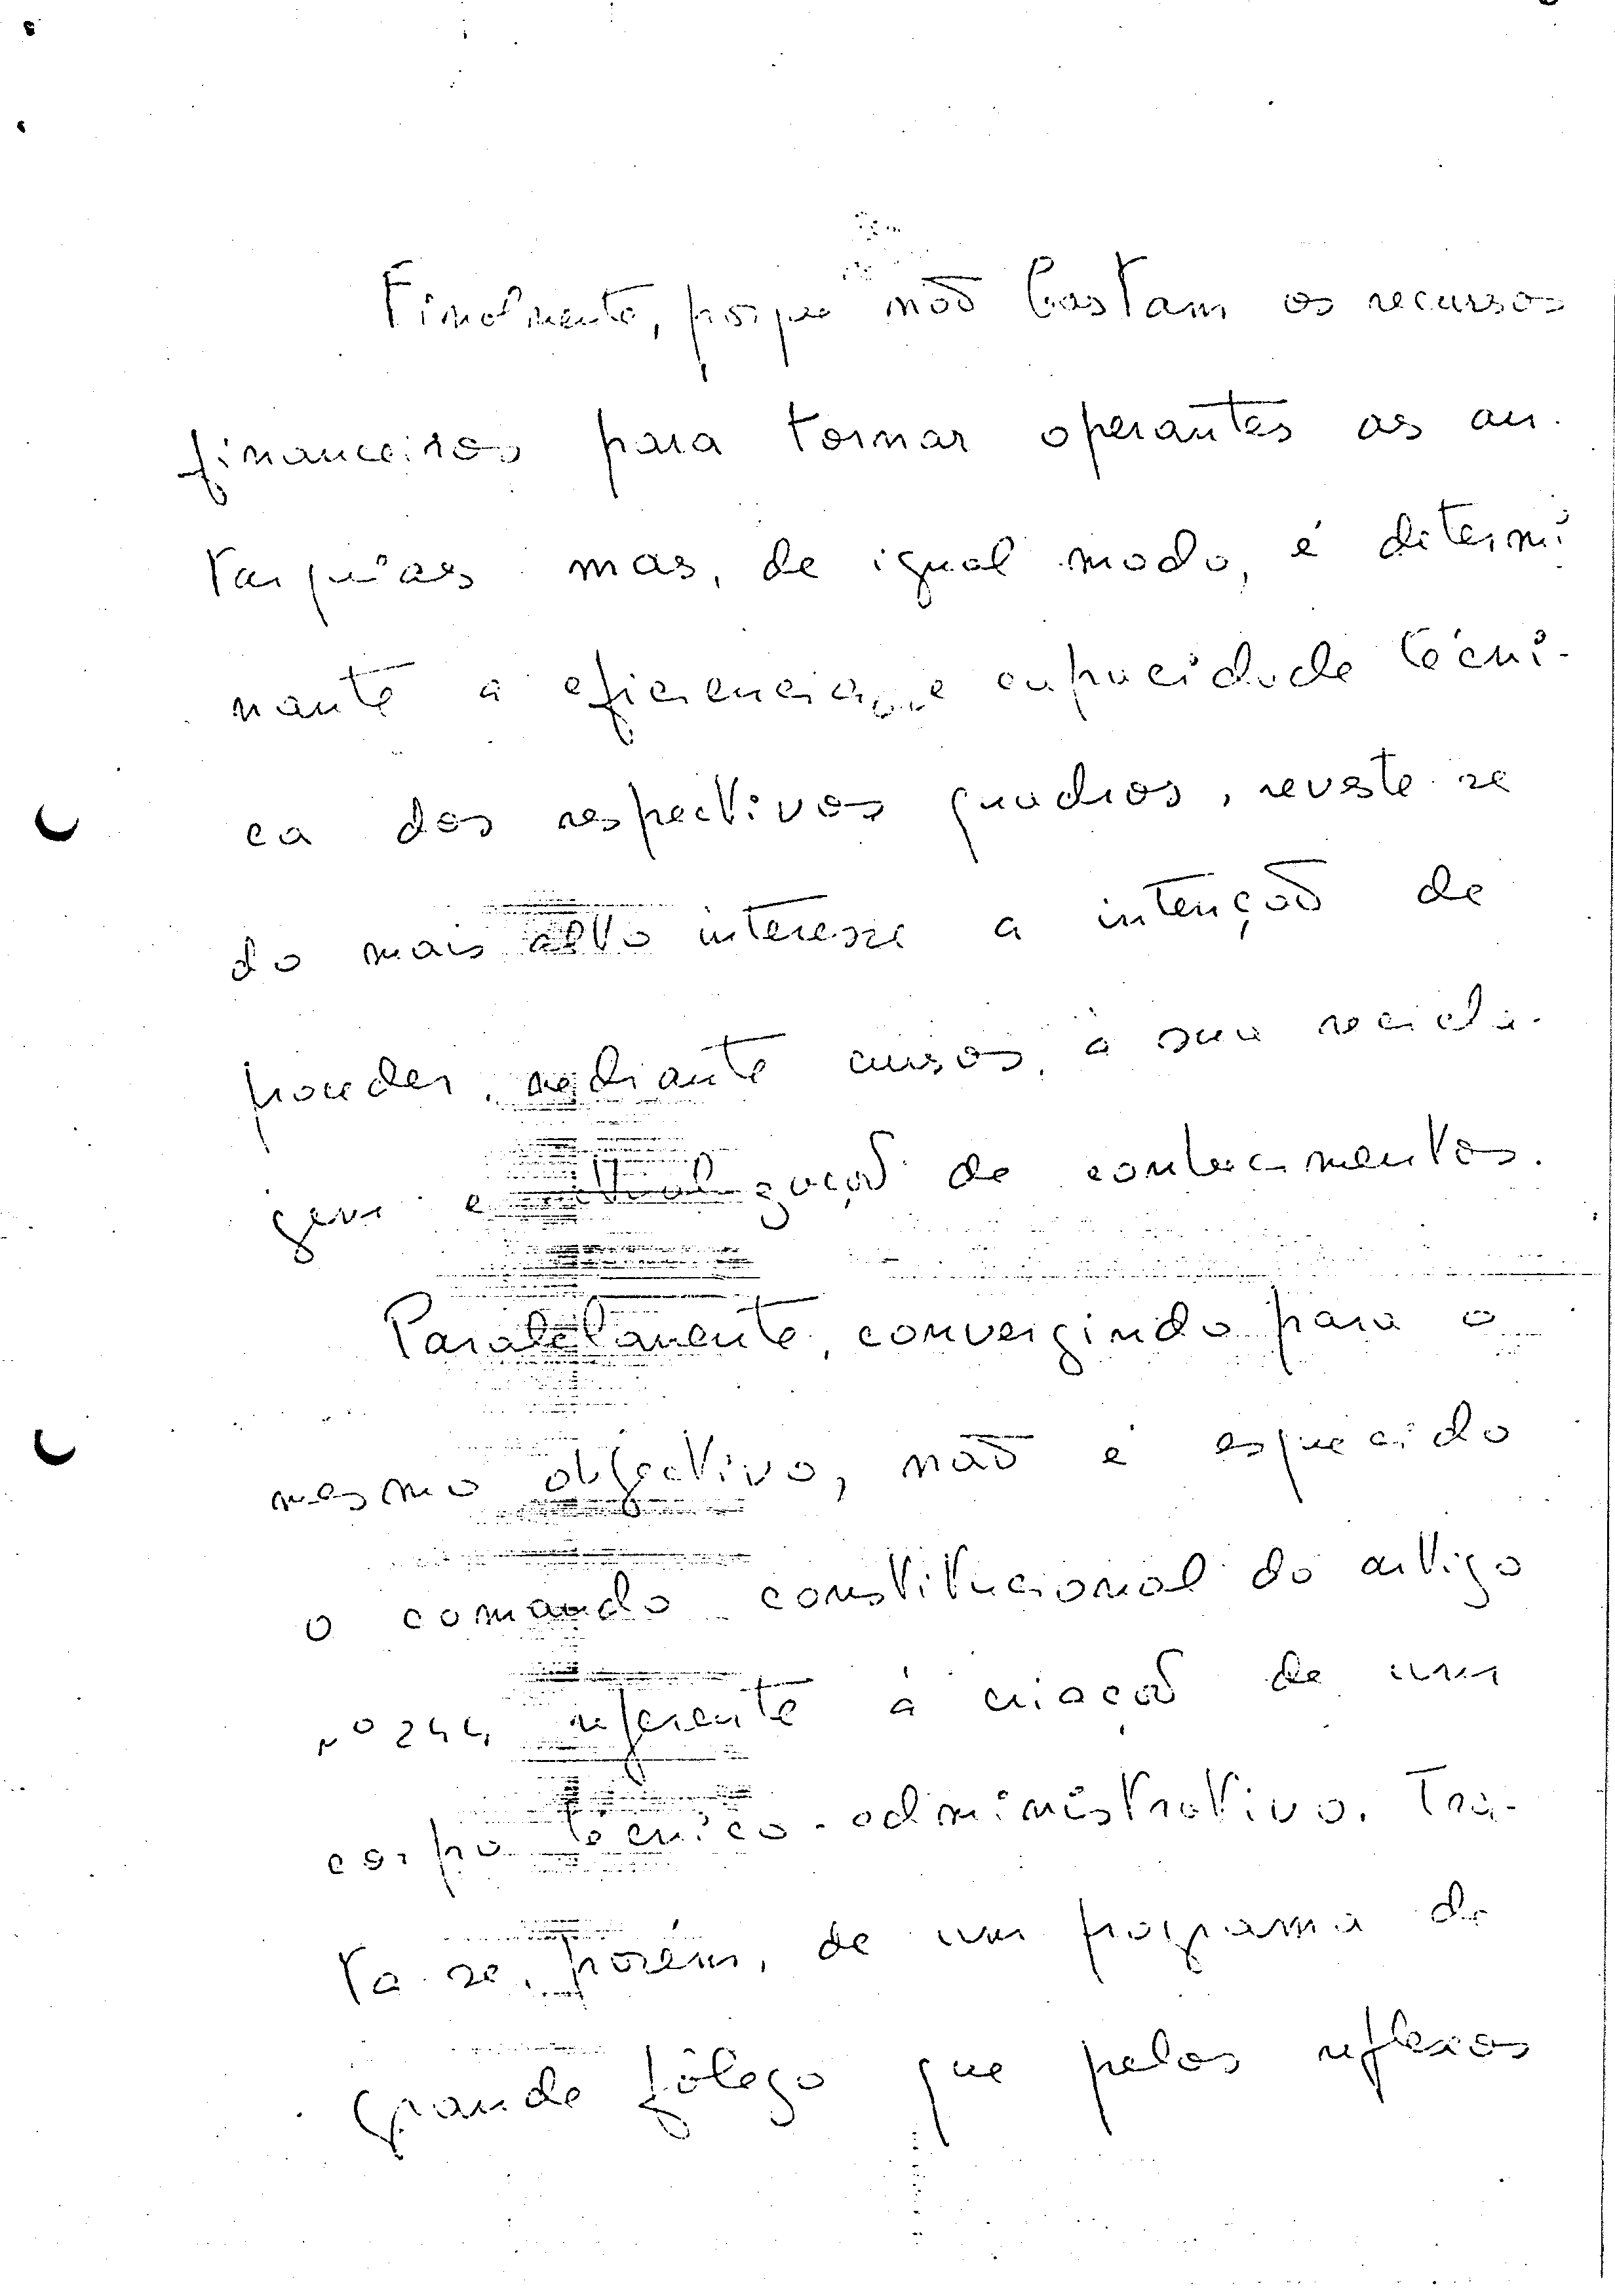 Finalmente, porque não bastam os recursos
financeiros para tornar operantes as au-
tarquias mas, de igual modo, é determi
nante a eficiencia e capacidade técni-
ca dos respectivos quadros, reveste-se
do mais alto interesse a intenção de
proceder, mediante cursos, à sua recicla-
gem e actualização de conhecimentos.
Paralelamente, convergindo para o
mesmo objectivo, não é esquecido
o comando constitucional do artigo
nº 244 referente à criação de um
corpo técnico-administrativo. Tra-
ta-se, porém, de um programa de
grande fôlego que pelos reflexos